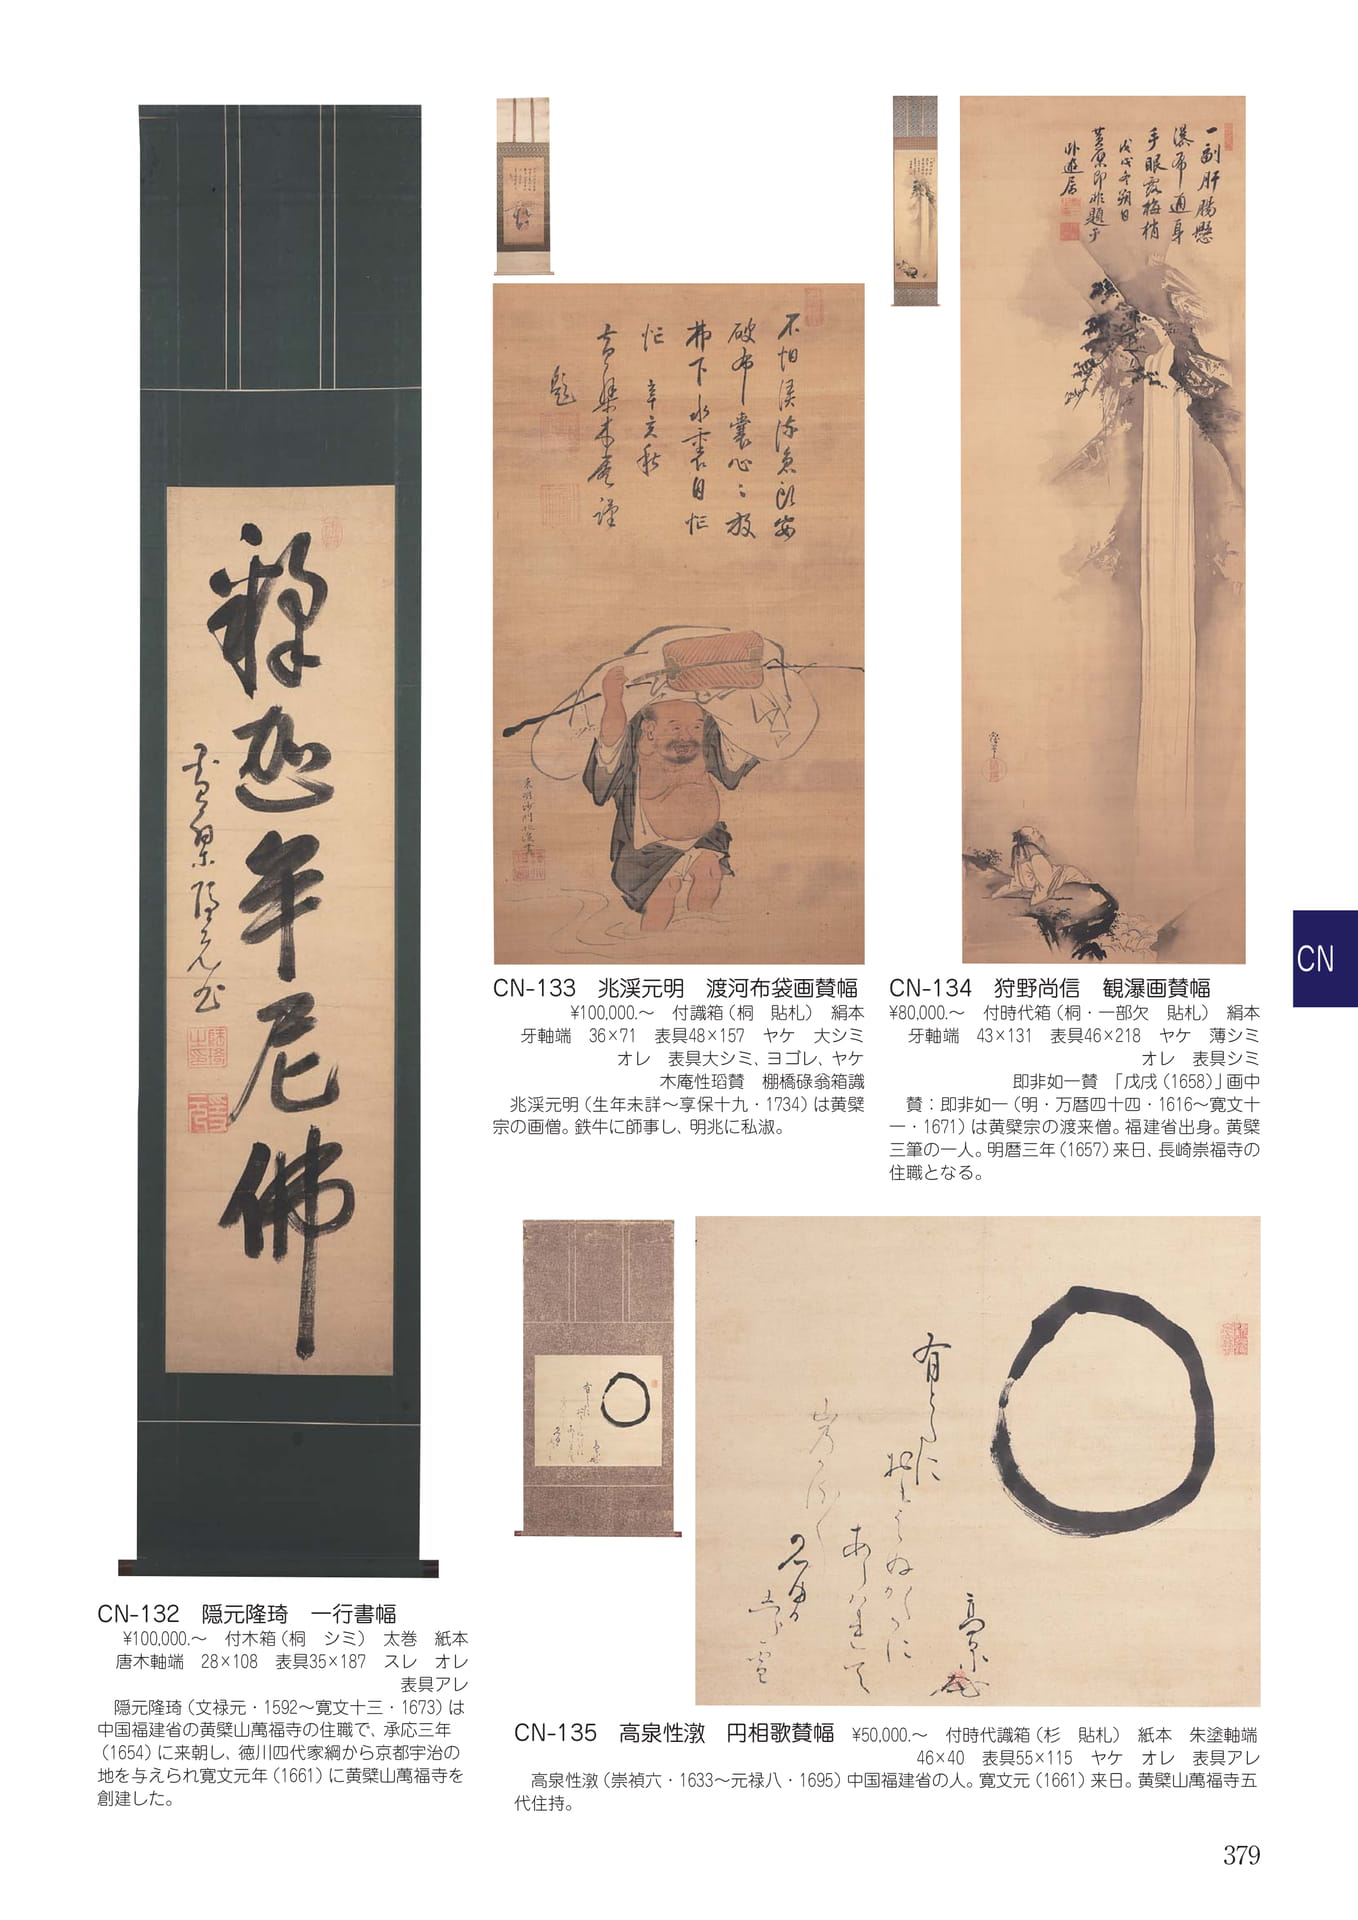 釋迦牟尼佛
黄檗隠元書
CN-132 隠元隆琦 一行書幅
¥100,000.～ 付木箱（桐 シミ） 太巻 紙本
唐木軸端 28×108 表具35×187 スレ オレ
表具アレ
隠元隆琦（文禄元・1592～寛文十三・1673）は
中国福建省の黄檗山萬福寺の住職で、承応三年
（1654）に来朝し、徳川四代家綱から京都宇治の
地を与えられ寛文元年（1661）に黄檗山萬福寺を
創建した。
不怕渓流急只安
破布囊心々放
弗下水雲自忙
忙 辛亥秋
黄檗木菴謹
題
CN-133 兆渓元明 渡河布袋画賛幅
¥100,000.～ 付識箱（桐 貼札） 絹本
牙軸端 36×71 表具48×157 ヤケ 大シミ
オレ 表具大シミ、ヨゴレ、ヤケ
木庵性瑫賛 棚橋碌翁箱識
兆渓元明（生年未詳～享保十九・1734）は黄檗
宗の画僧。鉄牛に師事し、明兆に私淑。
一副肝腸懸
瀑布通身
手眼露梅梢
戊戌冬朔日
黄檗即非題于
卧遊居
CN-134 狩野尚信 観瀑画賛幅
¥80,000.～ 付時代箱（桐・一部欠 貼札） 絹本
牙軸端 43×131 表具46×218 ヤケ 薄シミ
オレ 表具シミ
即非如一賛 「戊戌（1658）」画中
賛：即非如一（明・万暦四十四・1616～寛文十
一・1671）は黄檗宗の渡来僧。福建省出身。黄檗
三筆の一人。明暦三年（1657）来日、長崎崇福寺の
住職となる。
CN
高泉
CN-135 高泉性潡 円相歌賛幅 ¥50,000.～ 付時代識箱（杉 貼札） 紙本 朱塗軸端
46×40 表具55×115 ヤケ オレ 表具アレ
高泉性潡（崇禎六・1633～元禄八・1695）中国福建省の人。寛文元（1661）来日。黄檗山萬福寺五
代住持。
379